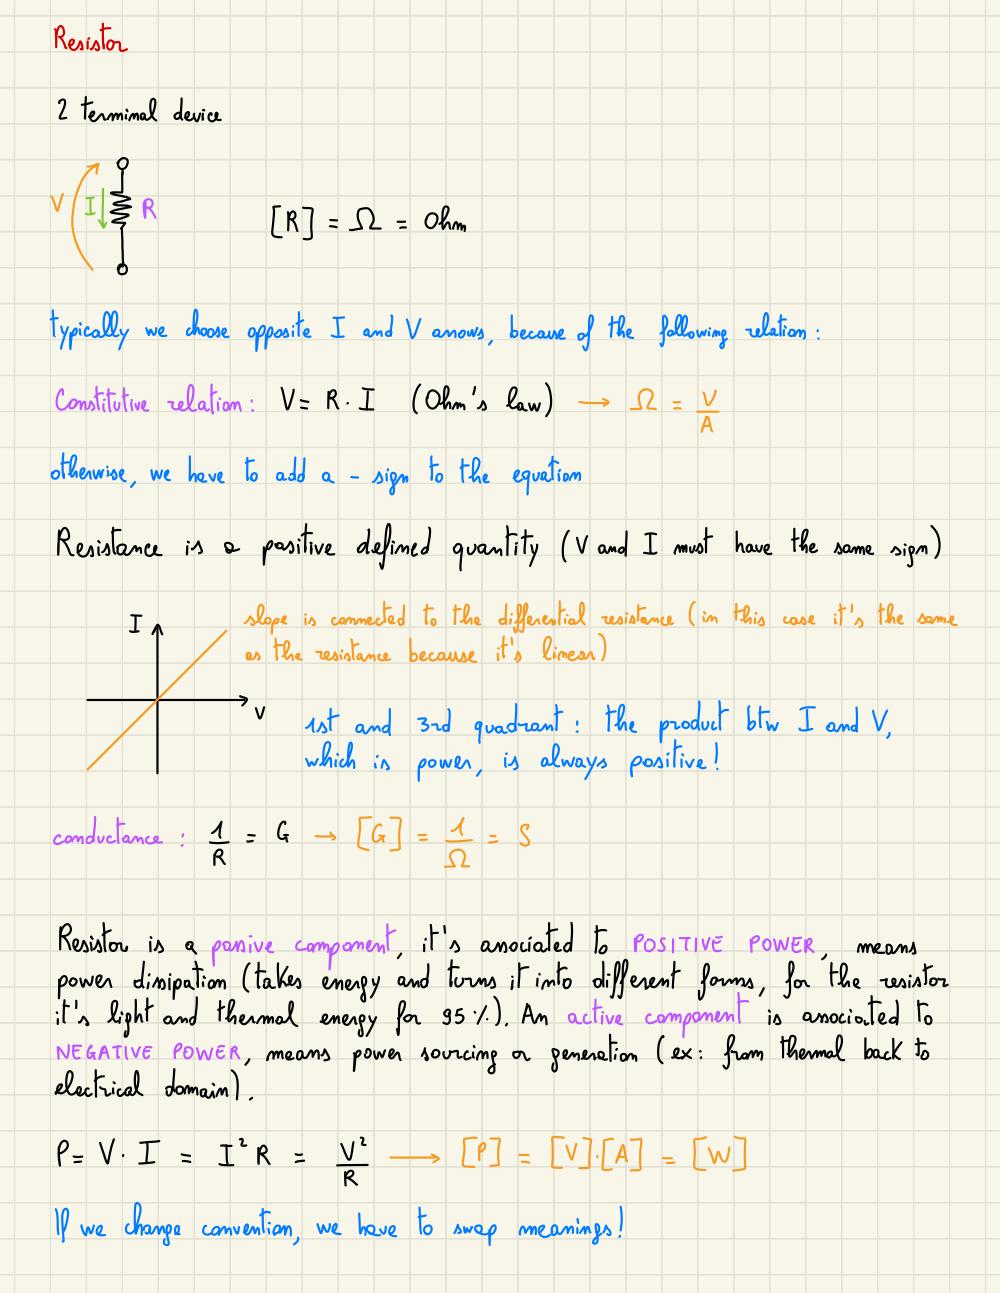 Resistor
2 terminal device
V I R
[R] = Ω = Ohm
typically we choose opposite I and V arrows, because of the following relation:
Constitutive relation: V = R · I (Ohm's law) → Ω = V/A
otherwise, we have to add a - sign to the equation
Resistance is a positive defined quantity (V and I must have the same sign)
I
slope is connected to the differential resistance (in this case it's the same
as the resistance because it's linear)
V
1st and 3rd quadrant: the product btw I and V,
which is power, is always positive!
conductance: 1/R = G → [G] = 1/Ω = S
Resistor is a passive component, it's associated to POSITIVE POWER, means
power dissipation (takes energy and turns it into different forms, for the resistor
it's light and thermal energy for 95%). An active component is associated to
NEGATIVE POWER, means power sourcing or generation (ex: from thermal back to
electrical domain).
P = V · I = I² R = V²/R → [P] = [V]·[A] = [W]
If we change convention, we have to swap meanings!